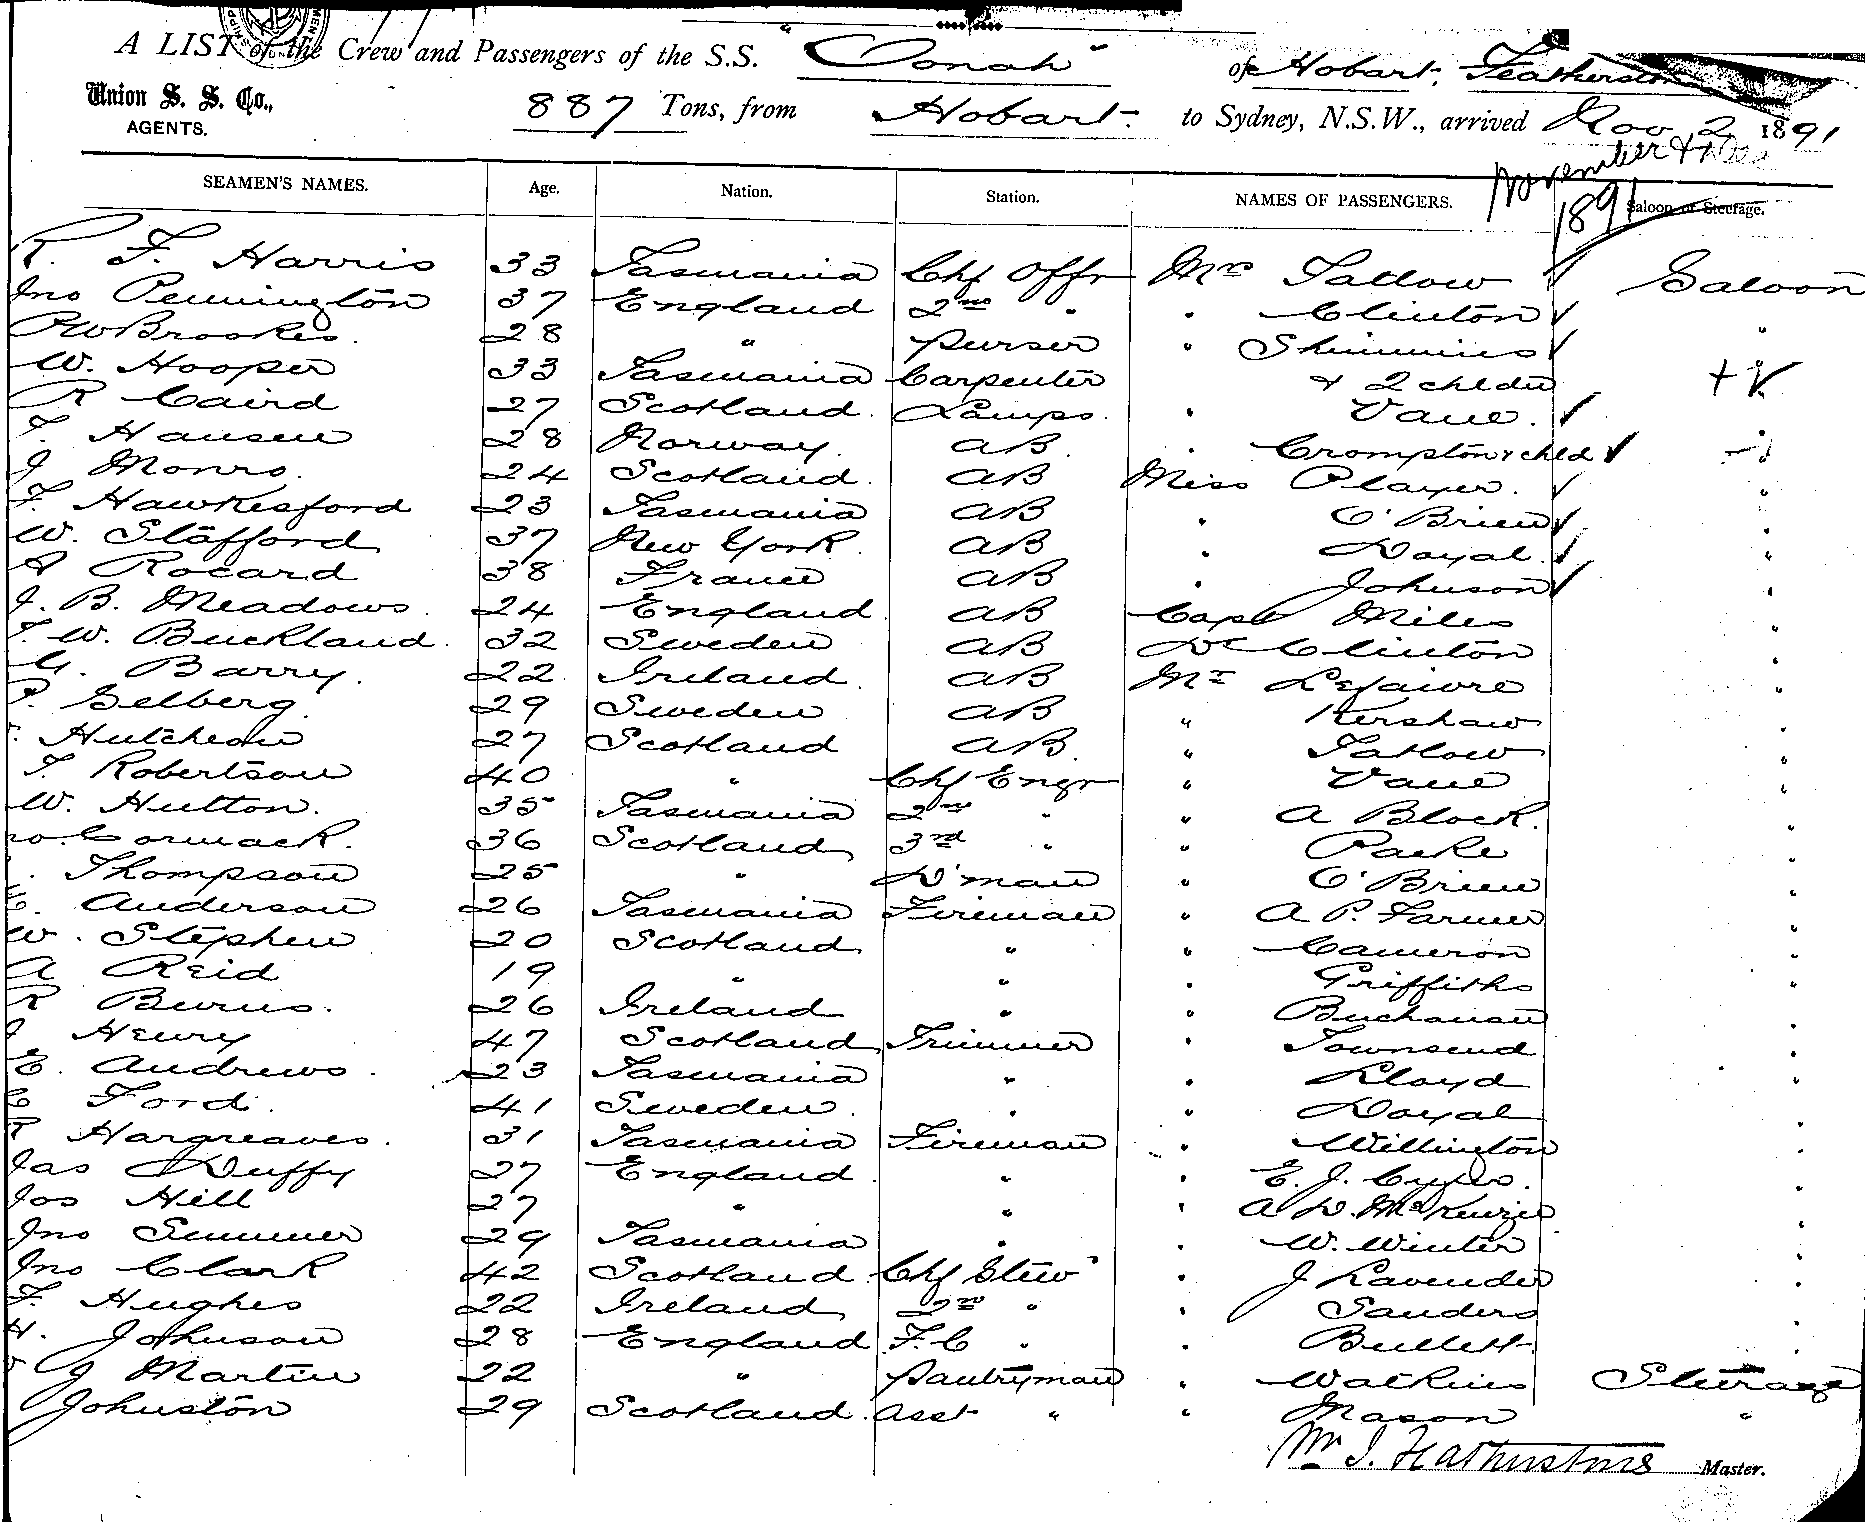 A LIST of the Crew and Passengers of the S.S. "Oonah" of Hobart, Featherstone
Union S. S. Co., 887 Tons, from Hobart to Sydney, N.S.W., arrived Nov 2 1891
AGENTS.
November &
1891
SEAMEN'S NAMES. Age. Nation. Station. NAMES OF PASSENGERS. Saloon or Steerage.
R. F. Harris 33 Tasmania Chf Offr Mrs Tatlow Saloon
Jno Pennington 37 England 2nd " " Clinton
Brookes. 28 " Purser " Shimmins "
W. Hooper 33 Tasmania Carpenter & 2 childn
R Caird 27 Scotland. Lamps. " Vane.
T. Hansen 28 Norway. AB. " Crompton & chld "
J Monro. 24 Scotland. AB Miss Player. "
F. Hawkesford 23 Tasmania AB " O'Brien "
W. Stafford 37 New York. AB " Doyal "
A Rocard 38 France AB " Johnson "
J. B. Meadows. 24 England AB Capt Miles "
T. W. Buckland. 32 Sweden AB Dr Clinton "
G. Barry. 22 Ireland. AB Mr Lefaivre "
P. Selberg. 29 Sweden AB " Kershaw "
Hutcheon 27 Scotland AB. " Tatlow "
T. Robertson 40 " Chf Engr " Vane "
W. Hutton. 35 Tasmania 2nd " " A Block. "
Cormack. 36 Scotland 3rd " " Packe "
Thompson 25 " D'man " O'Brien "
E. Anderson 26 Tasmania Fireman " A P. Farmer "
W. Stephen 20 Scotland " " Cameron "
A Reid 19 " " " Griffiths "
R Burns. 26 Ireland " " Buchanan "
J Henry 47 Scotland Trimmer " Townsend "
E. Andrews. 23 Tasmania " " Lloyd "
C Ford. 41 Sweden. " " Doyal
R Hargreaves. 31 Tasmania Fireman " Wellington "
Jas Duffy 27 England " " E. J. "
Jos Hill 27 " " " A D. McKenzie "
Jno Summer 29 Tasmania " " W. Winter "
Jno Clark 42 Scotland Chf Stew " J Lavender "
F. Hughes 22 Ireland 2nd " " Sanders "
H. Johnson 28 England F.C " " Bullett "
J Martin 22 " Pantryman " Watkins Steerage
Johnston 29 Scotland. Asst " " Mason "
Wm J. Featherstone Master.